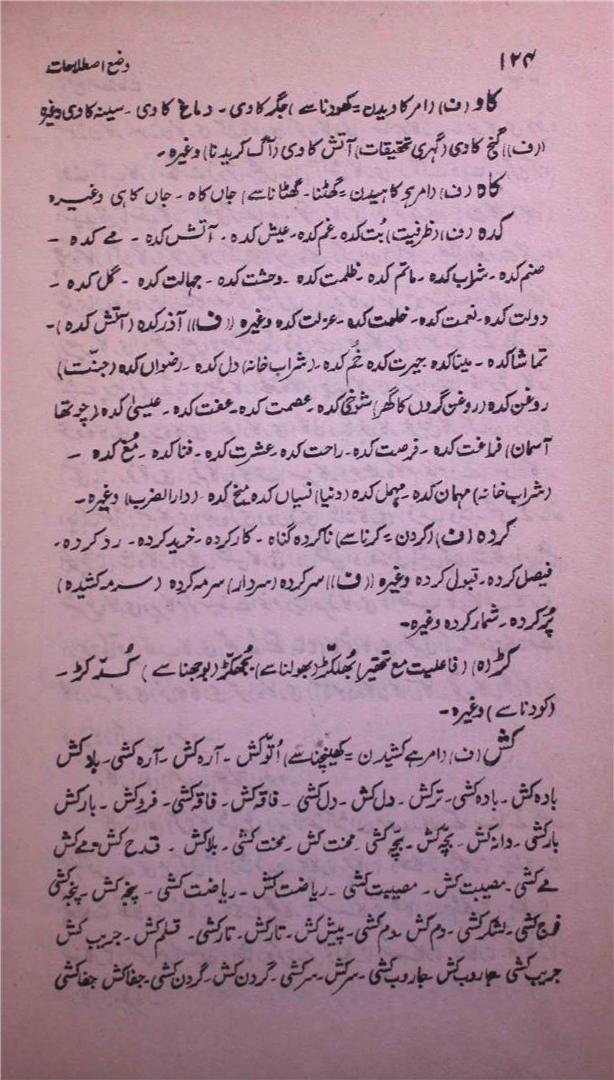 ۱۲۴ وضع اصطلاحات
کاو (ف) (امر کاویدن = کھودنا سے) جگر کاوی ۔ دماغ کاوی ۔ سینہ کاوی وغیرہ
((ف)) گنج کاوی (گہری تحقیقات) آتش کاوی (آگ کریدنا) وغیرہ ۔
کاہ (ف) (امر ہے کاہیدن = گھٹنا ۔ گھٹانا سے) جاں کاہ ۔ جاں کاہی وغیرہ
کدہ (ف) (ظرفیت) بُت کدہ ۔ غم کدہ ۔ عیش کدہ ۔ آتش کدہ ۔ مے کدہ ۔
صنم کدہ ۔ شراب کدہ ۔ ماتم کدہ ۔ ظلمت کدہ ۔ وحشت کدہ ۔ جہالت کدہ ۔ گل کدہ ۔
دولت کدہ ۔ نعمت کدہ ۔ خلوت کدہ ۔ عزلت کدہ وغیرہ ((ف)) آذر کدہ (آتش کدہ) ۔
تماشا کدہ ۔ مینا کدہ ۔ حیرت کدہ ۔ خُم کدہ ۔ (شراب خانہ) دل کدہ ۔ رضواں کدہ (جنّت)
روغن کدہ (روغن گروں کا گھر) شوخی کدہ ۔ عصمت کدہ ۔ عفت کدہ ۔ عیسیٰ کدہ (چوتھا
آسمان) فراغت کدہ ۔ فرصت کدہ ۔ راحت کدہ ۔ عشرت کدہ ۔ فنا کدہ ۔ مُغ کدہ ۔
(شراب خانہ) مہمان کدہ ۔ مہمل کدہ (دنیا) نسیاں کدہ ۔ میخ کدہ (دار الضرب) وغیرہ ۔
کردہ (ف) (کردن = کرنا سے) ناکردہ گناہ ۔ کارکردہ ۔ خرید کردہ ۔ رد کردہ ۔
فیصل کردہ ۔ قبول کردہ وغیرہ ((ف)) سرکردہ (سردار) سرمہ کردہ (سرمہ کشیدہ)
پُر کردہ ۔ شمار کردہ وغیرہ ۔
کڑ (ہ) (فاعلیت مع تحقیر) بُھلکڑ (بھولنا سے) بُجھکڑ (بوجھنا سے) کُدّکڑ ۔
(کودنا سے) وغیرہ ۔
کش (ف) (امر ہے کشیدن = کھینچنا سے) اُتّو کش ۔ آرہ کش ۔ آرہ کشی ۔ باد کش
بادہ کش ۔ بادہ کشی ۔ ترکش ۔ دل کش ۔ دل کشی ۔ فاقہ کش ۔ فاقہ کشی ۔ فروکش ۔ بار کش
بار کشی ۔ دانہ کش ۔ بچّہ کش ۔ بچّہ کشی ۔ محنت کش ۔ محنت کشی ۔ بلا کش ۔ قدح کش ۔ مے کش
مے کشی ۔ مصیبت کش ۔ مصیبت کشی ۔ ریاضت کش ۔ ریاضت کشی ۔ پنجہ کش ۔ پنجہ کشی
فوج کشی ۔ لشکر کشی ۔ دم کش ۔ دم کشی ۔ پیش کش ۔ تار کش ۔ تار کشی ۔ قلم کش ۔ جریب کش
جریب کشی ۔ جاروب کش ۔ جاروب کشی ۔ سرکش ۔ سرکشی ۔ گردن کش ۔ گردن کشی ۔ جفا کش ۔ جفا کشی